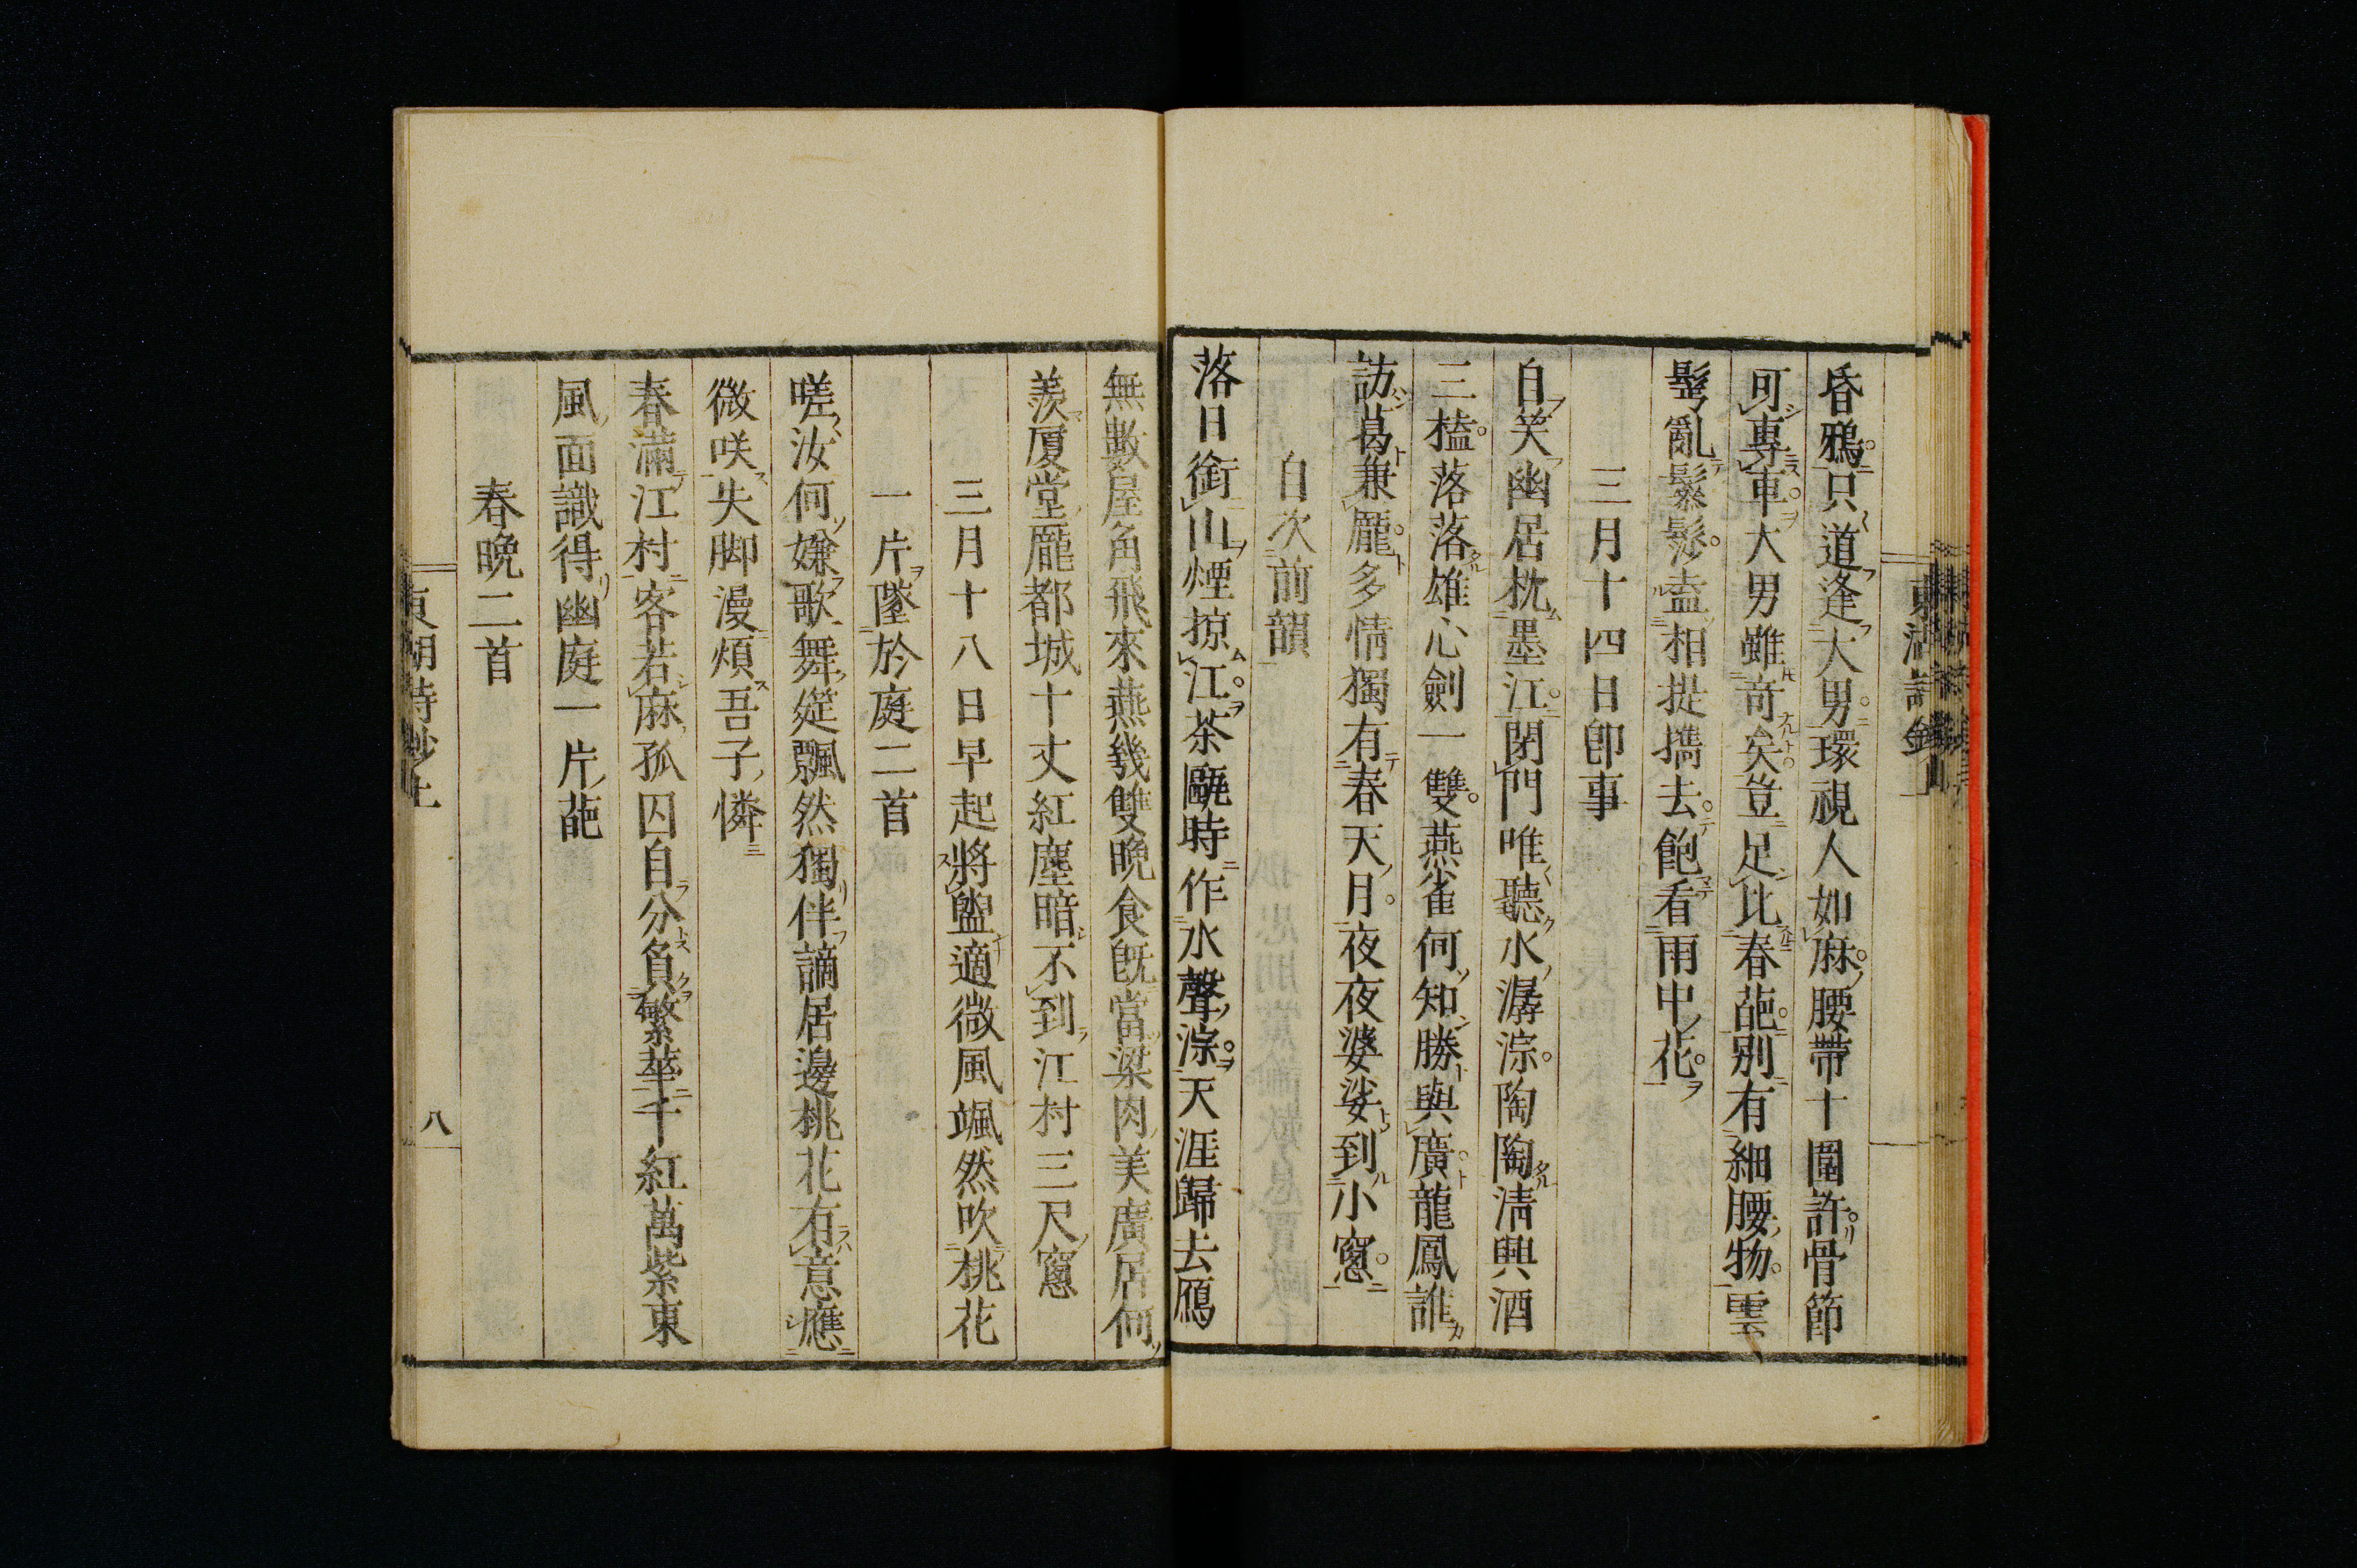 昏鴉只道逢大男環視人如麻腰帶十圍許骨節
可專車大男雖奇矣豈足比春葩別有細腰物雲
鬟亂鬆髿盍相提攜去飽看雨中花
三月十四日卽事
自笑幽居枕墨江閉門唯聽水潺淙陶陶淸興酒
三榼落落雄心劍一雙燕雀何知勝與廣龍鳳誰
訪葛兼龐多情獨有春天月夜夜婆娑到小窻
自次前韻
落日銜山煙掠江茶甌時作水聲淙天涯歸去雁
無數屋角飛來燕幾雙晩食旣當梁肉美廣居何
羨厦堂龐都城十丈紅塵暗不到江村三尺窻
三月十八日早起將盥適微風颯然吹桃花
一片墜於庭二首
嗟汝何嫌歌舞筵飄然獨伴謫居邊桃花有意應
微咲失脚漫煩吾子憐
春滿江村客若麻孤囚自分負繁華千紅萬紫東
風面識得幽庭一片葩
春晩二首
東湖詩鈔上
八